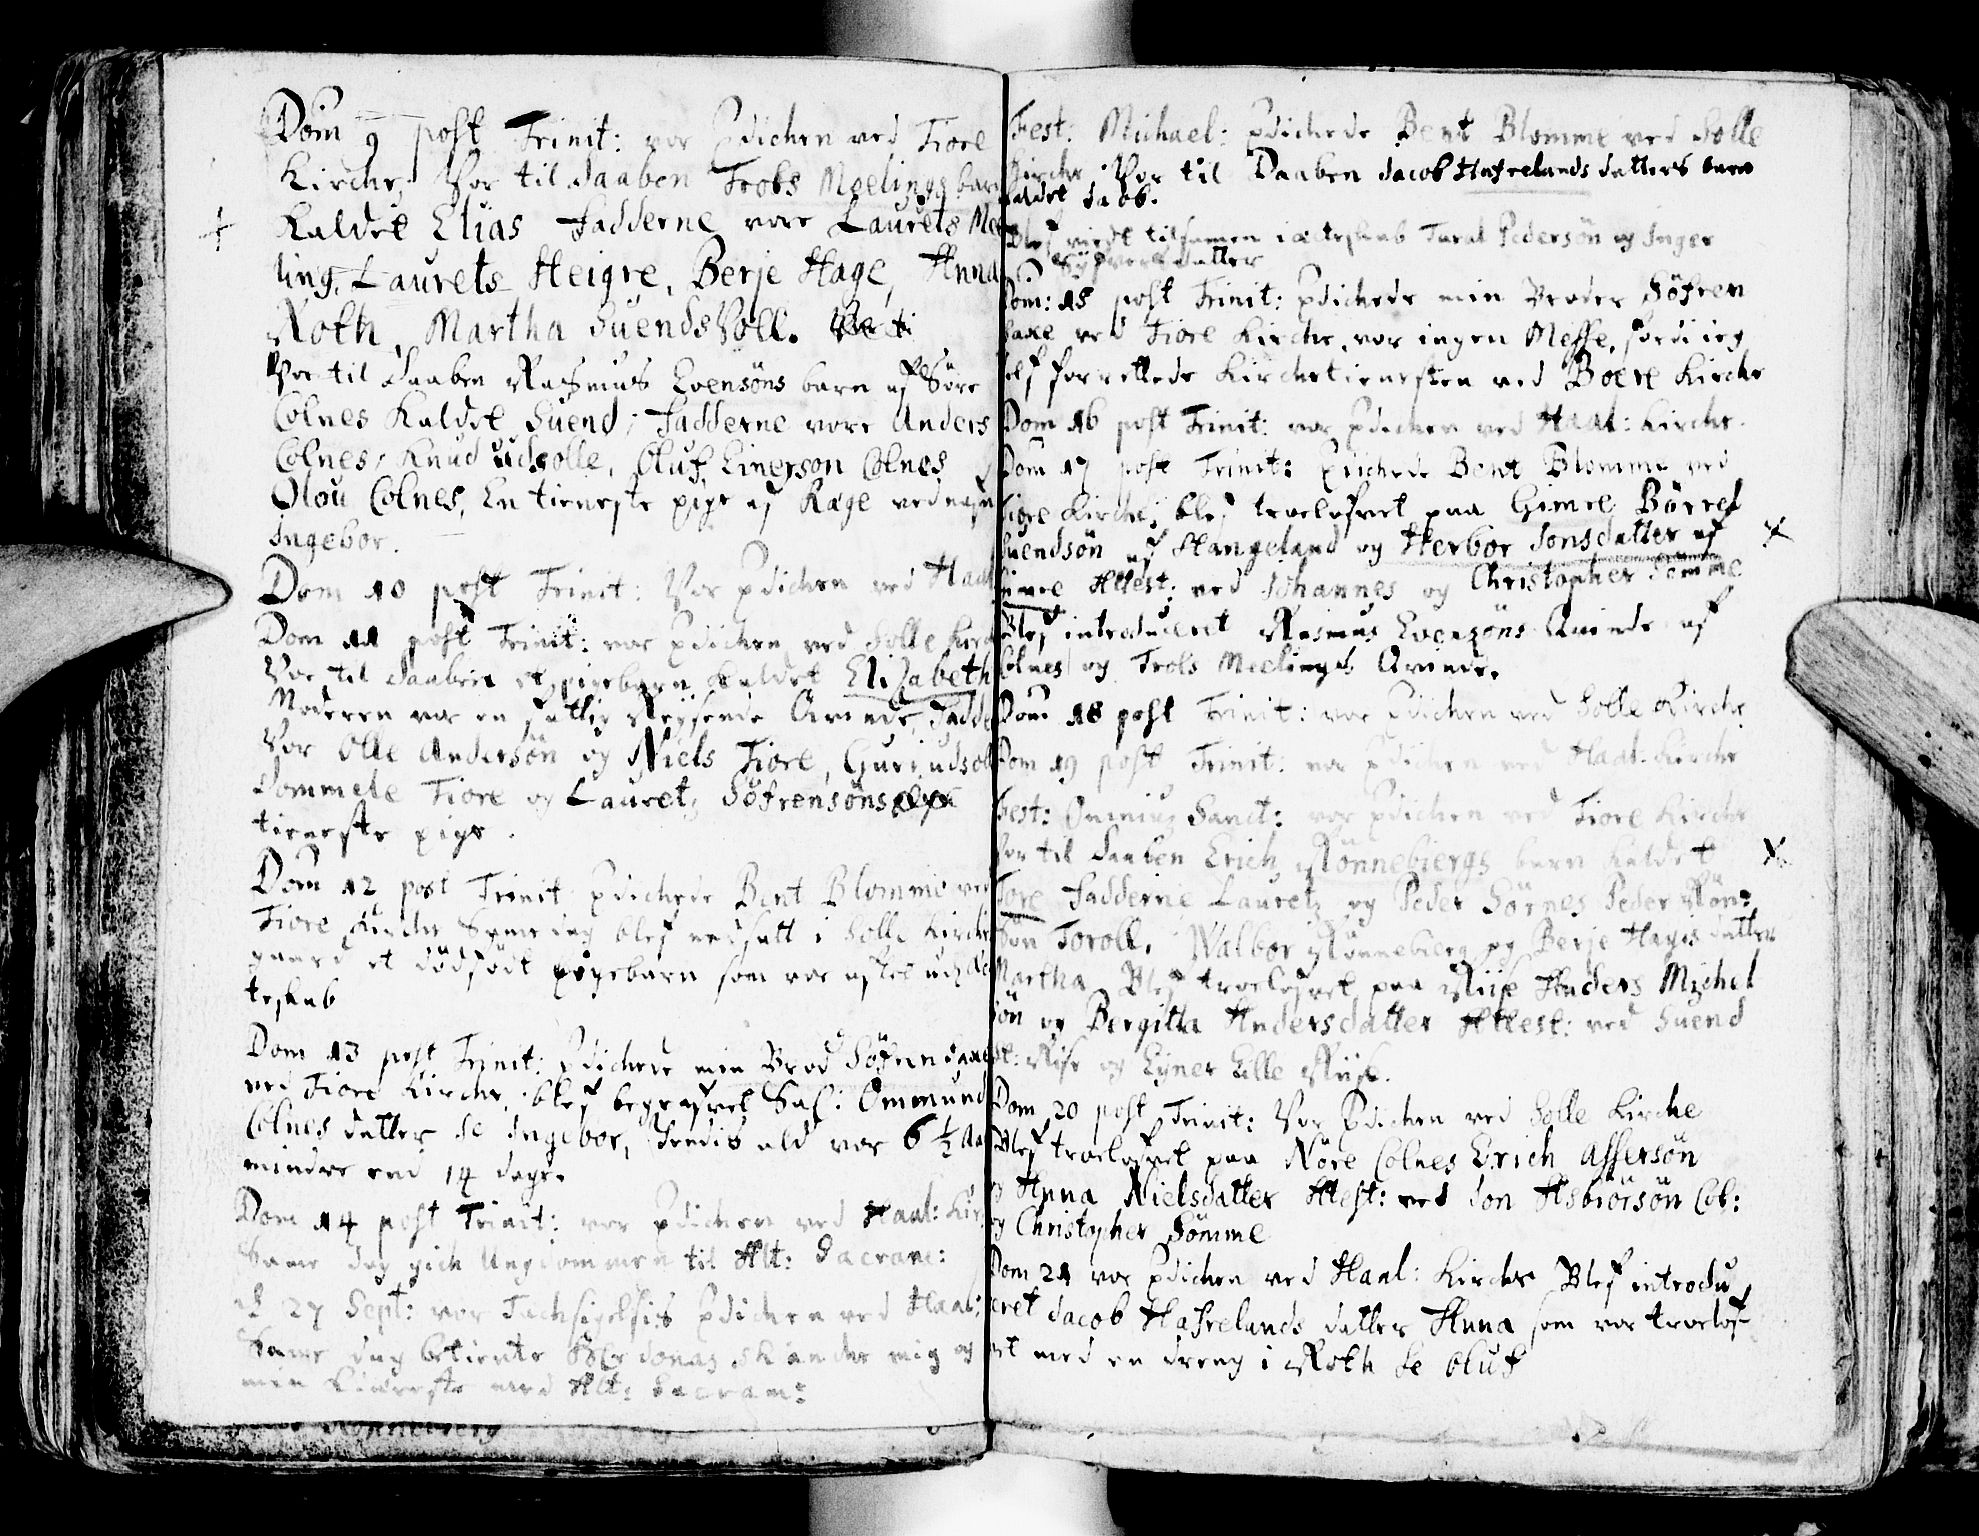 Dom 9 post Trinit: var Prdichen ved Tiore
Kirche, Var til daaben Trols Mælings barn
Kaldet Elias Fadderne vare Laurets Mæ
ling, Laurets Heigre, Berje Hage, Anna
Roth, Martha SuendsVoll.
Var til daaben Rasmus Evensöns barn af Söre
Colnes Kaldet Suend, Fadderne vare Anders
Colnes, Knud udsolle, Oluf Einerson Colnes
Olou Colnes, En tieneste pige af Ræge ved nafn
Ingebor.
Dom 10 post Trinit: Var Prdichen ved Haal
Dom 11 post Trinit: var Prdichen ved Solle Kirch
Var til daaben et pigebarn kaldet Elizabeth
Moderen var en fattig Reysende Qvinde, Fadde
Var Olle Andersön og Niels Tiore, Guri udsoll
Sommele Tiore og Lauretz Söfrensöns
tieneste pige.
Dom 12 post Trinit Prdichede Bent Blomme ved
Tiore Kirche Same dag blef nedsatt i Solle Kirche
gaard et dödfödt pigebarn som var aflet
teskab
Dom 13 post Trinit: Prdichede min Brod Söfren Saxe
ved Tiore Kirche, blef begrafvet Sal: Ommund
Colnes datter Se Ingebor, hendis ald var 6 1/2 Aar
mindre end 14 dage.
Dom 14 post Trinit: var Prdichen ved Haal: Kir
Same dag gich Ungdommen til Alt: Sacram:
27 Sept: var Tachsigelsis Prdichen ved Haal:
Same dag betiente Hr Jonas Skanche mig og
min Kiereste med Alt: Sacram:
Fest: Michael: Prdichede Bent Blomme ved Solle
Kirche Var til Daaben Jacob Hafrelands datters barn
kaldet Jacob.
Blef viedt tilsamen i ecteskab Taral Pedersön og Inger
Syfversdatter
Dom: 15 post Trinit: Prdichede min Broder Söfren
Saxe ved Tiore Kirche, var ingen Messe, fordi ieg
self forrettede Kirchetienesten ved Boere Kirche
Dom 16 post Trinit: var Prdichen ved Haal: Kirche.
Dom 17 post Trinit: Prdichede Bent Blomme ved
Tiore Kirche, blef trolofvet paa Gimre Börrel
Suendsön af Stangeland og Herbor Jonsdatter af
Gimre Attest: ved Johannes og Christopher Sömme
Blef introduceret Rasmus Evensöns Qvinde af
Colnes og Trols Mælings Qvinde.
Dom 18 post Trinit: var Prdichen ved Solle Kirche
Dom 19 post Trinit: var Prdichen ved Haal: Kirche
Fest: Omnium Sanct: var Prdichen ved Tiore Kirche
Var til daaben Erich Rönnebiergs barn kaldet
Tore Fadderne Lauretz og Peder Sörnes Peder Rön:
Toroll, Walbor Rönnebierg og Berje Hages datter
Martha Blef trolofvet paa Riise Anders Michel
sön og Bergitta Andersdatter Attest: ved Suend
St: Rise og Eyner Lille Riise.
Dom 20 post Trinit: Var Prdichen ved Solle Kirche
Blef trolofvet paa Nöre Colnes Erich Assersön
og Anna Nielsdatter Attest: ved Jon Asbiörsön Col:
og Christopher Sömme
Dom 21 var Prdichen ved Haal: Kirche Blef introdu
ceret Jacob Hafrelands datter Anna som var trolof
vet med en dreng i Roth Se Oluf